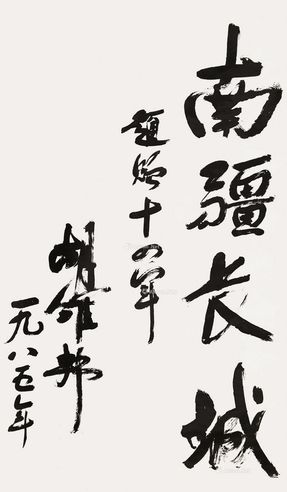 南疆长城
题赠十四军
胡耀邦
一九八五年